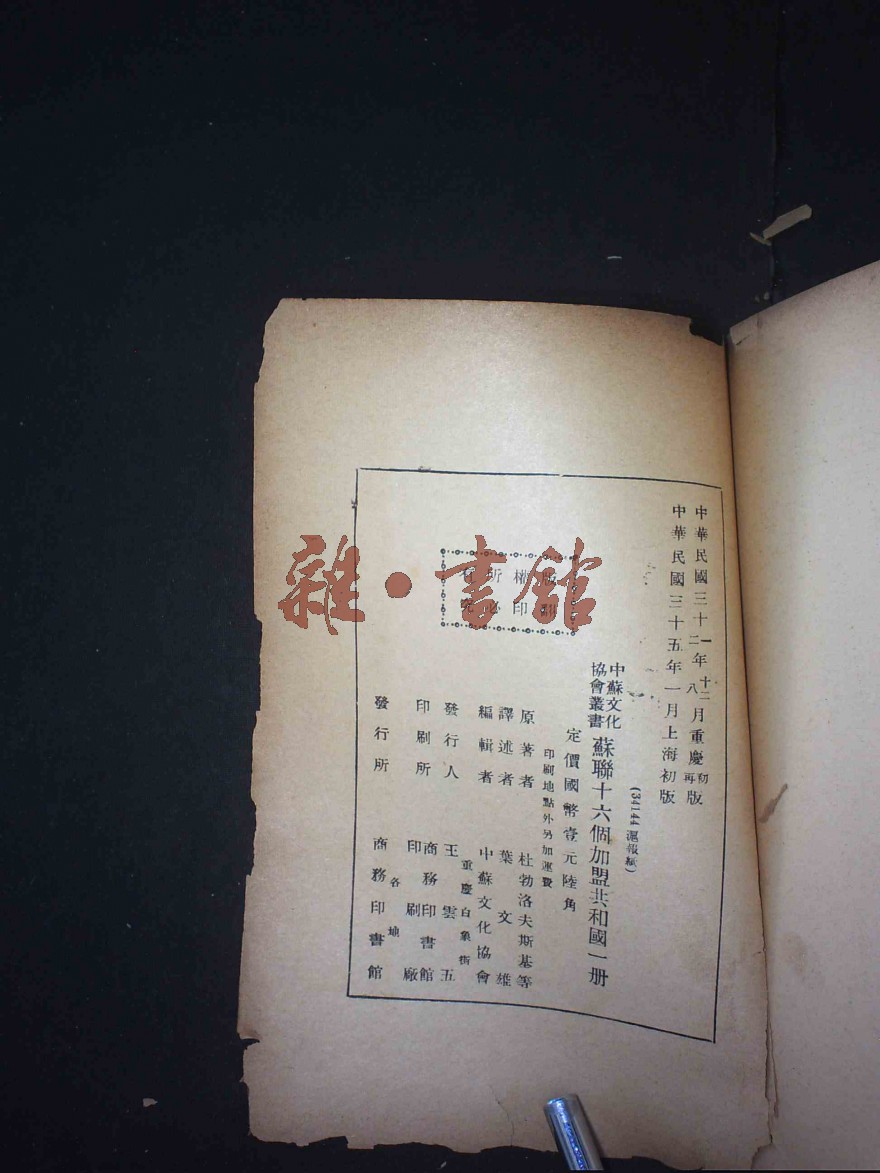 中華民國三十一年十二月重慶初版
中華民國三十二年八月重慶再版
中華民國三十五年一月上海初版
(34144滬報紙)
中蘇文化協會叢書 蘇聯十六個加盟共和國一册
定價國幣壹元陸角
印刷地點外另加運費
原著者 杜勃洛夫斯基等
譯述者 葉文雄
編輯者 中蘇文化協會
重慶白象街
發行人 王雲五
印刷所 商務印書館印刷廠
各地
發行所 商務印書館
版權所有
翻印必究
雜·書館